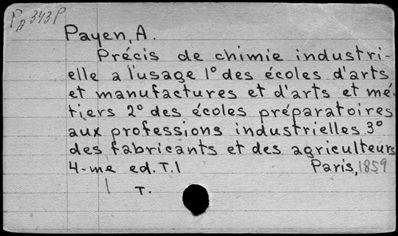 P A 343 P
Payen, A.
Précis de chimie industri-
elle a l'usage 1° des écoles d'arts
et manufactures et d'arts et mé-
tiers 2° des écoles préparatoires
aux professions industrielles 3°
des fabricants et des agriculteurs
4-me ed. T.I Paris, 1859
1 T.